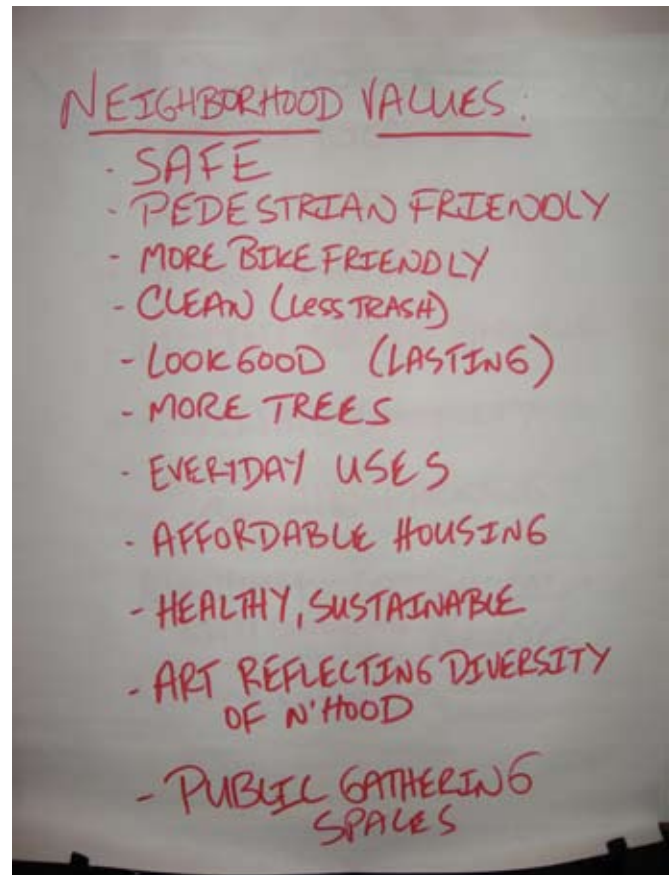 NEIGHBORHOOD VALUES:
- SAFE
- PEDESTRIAN FRIENDLY
- MORE BIKE FRIENDLY
- CLEAN (LESS TRASH)
- LOOK GOOD (LASTING)
- MORE TREES
- EVERYDAY USES
- AFFORDABLE HOUSING
- HEALTHY, SUSTAINABLE
- ART REFLECTING DIVERSITY
OF N'HOOD
- PUBLIC GATHERING
SPACES